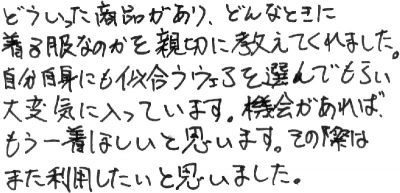 どういった商品があり、どんなときに
着る服なのかを親切に教えてくれました。
自分自身にも似合うウェアを選んでもらい
大変気に入っています。機会があれば、
もう一着ほしいと思います。その際は
また利用したいと思いました。